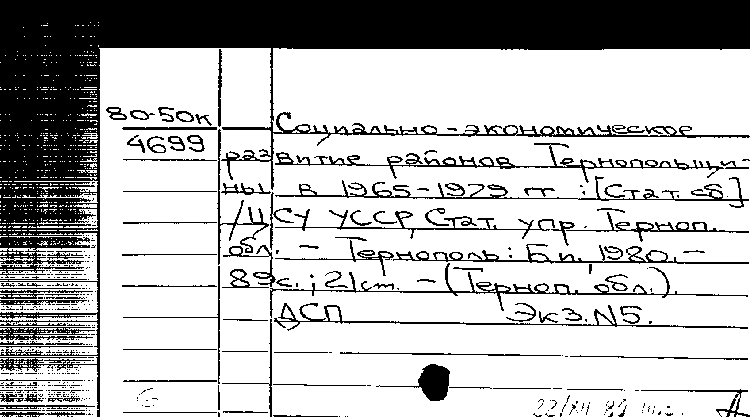 80-50к
4699
Социально-экономическое
развитие районов Тернопольщи-
ны в 1965-1979 гг. : [Стат. сб.]
/ЦСУ УССР, Стат. упр. Терноп.
обл. - Тернополь : Б.и. 1980. -
89с. ; 21см. - (Терноп. обл.).
ДСП Экз. N5.